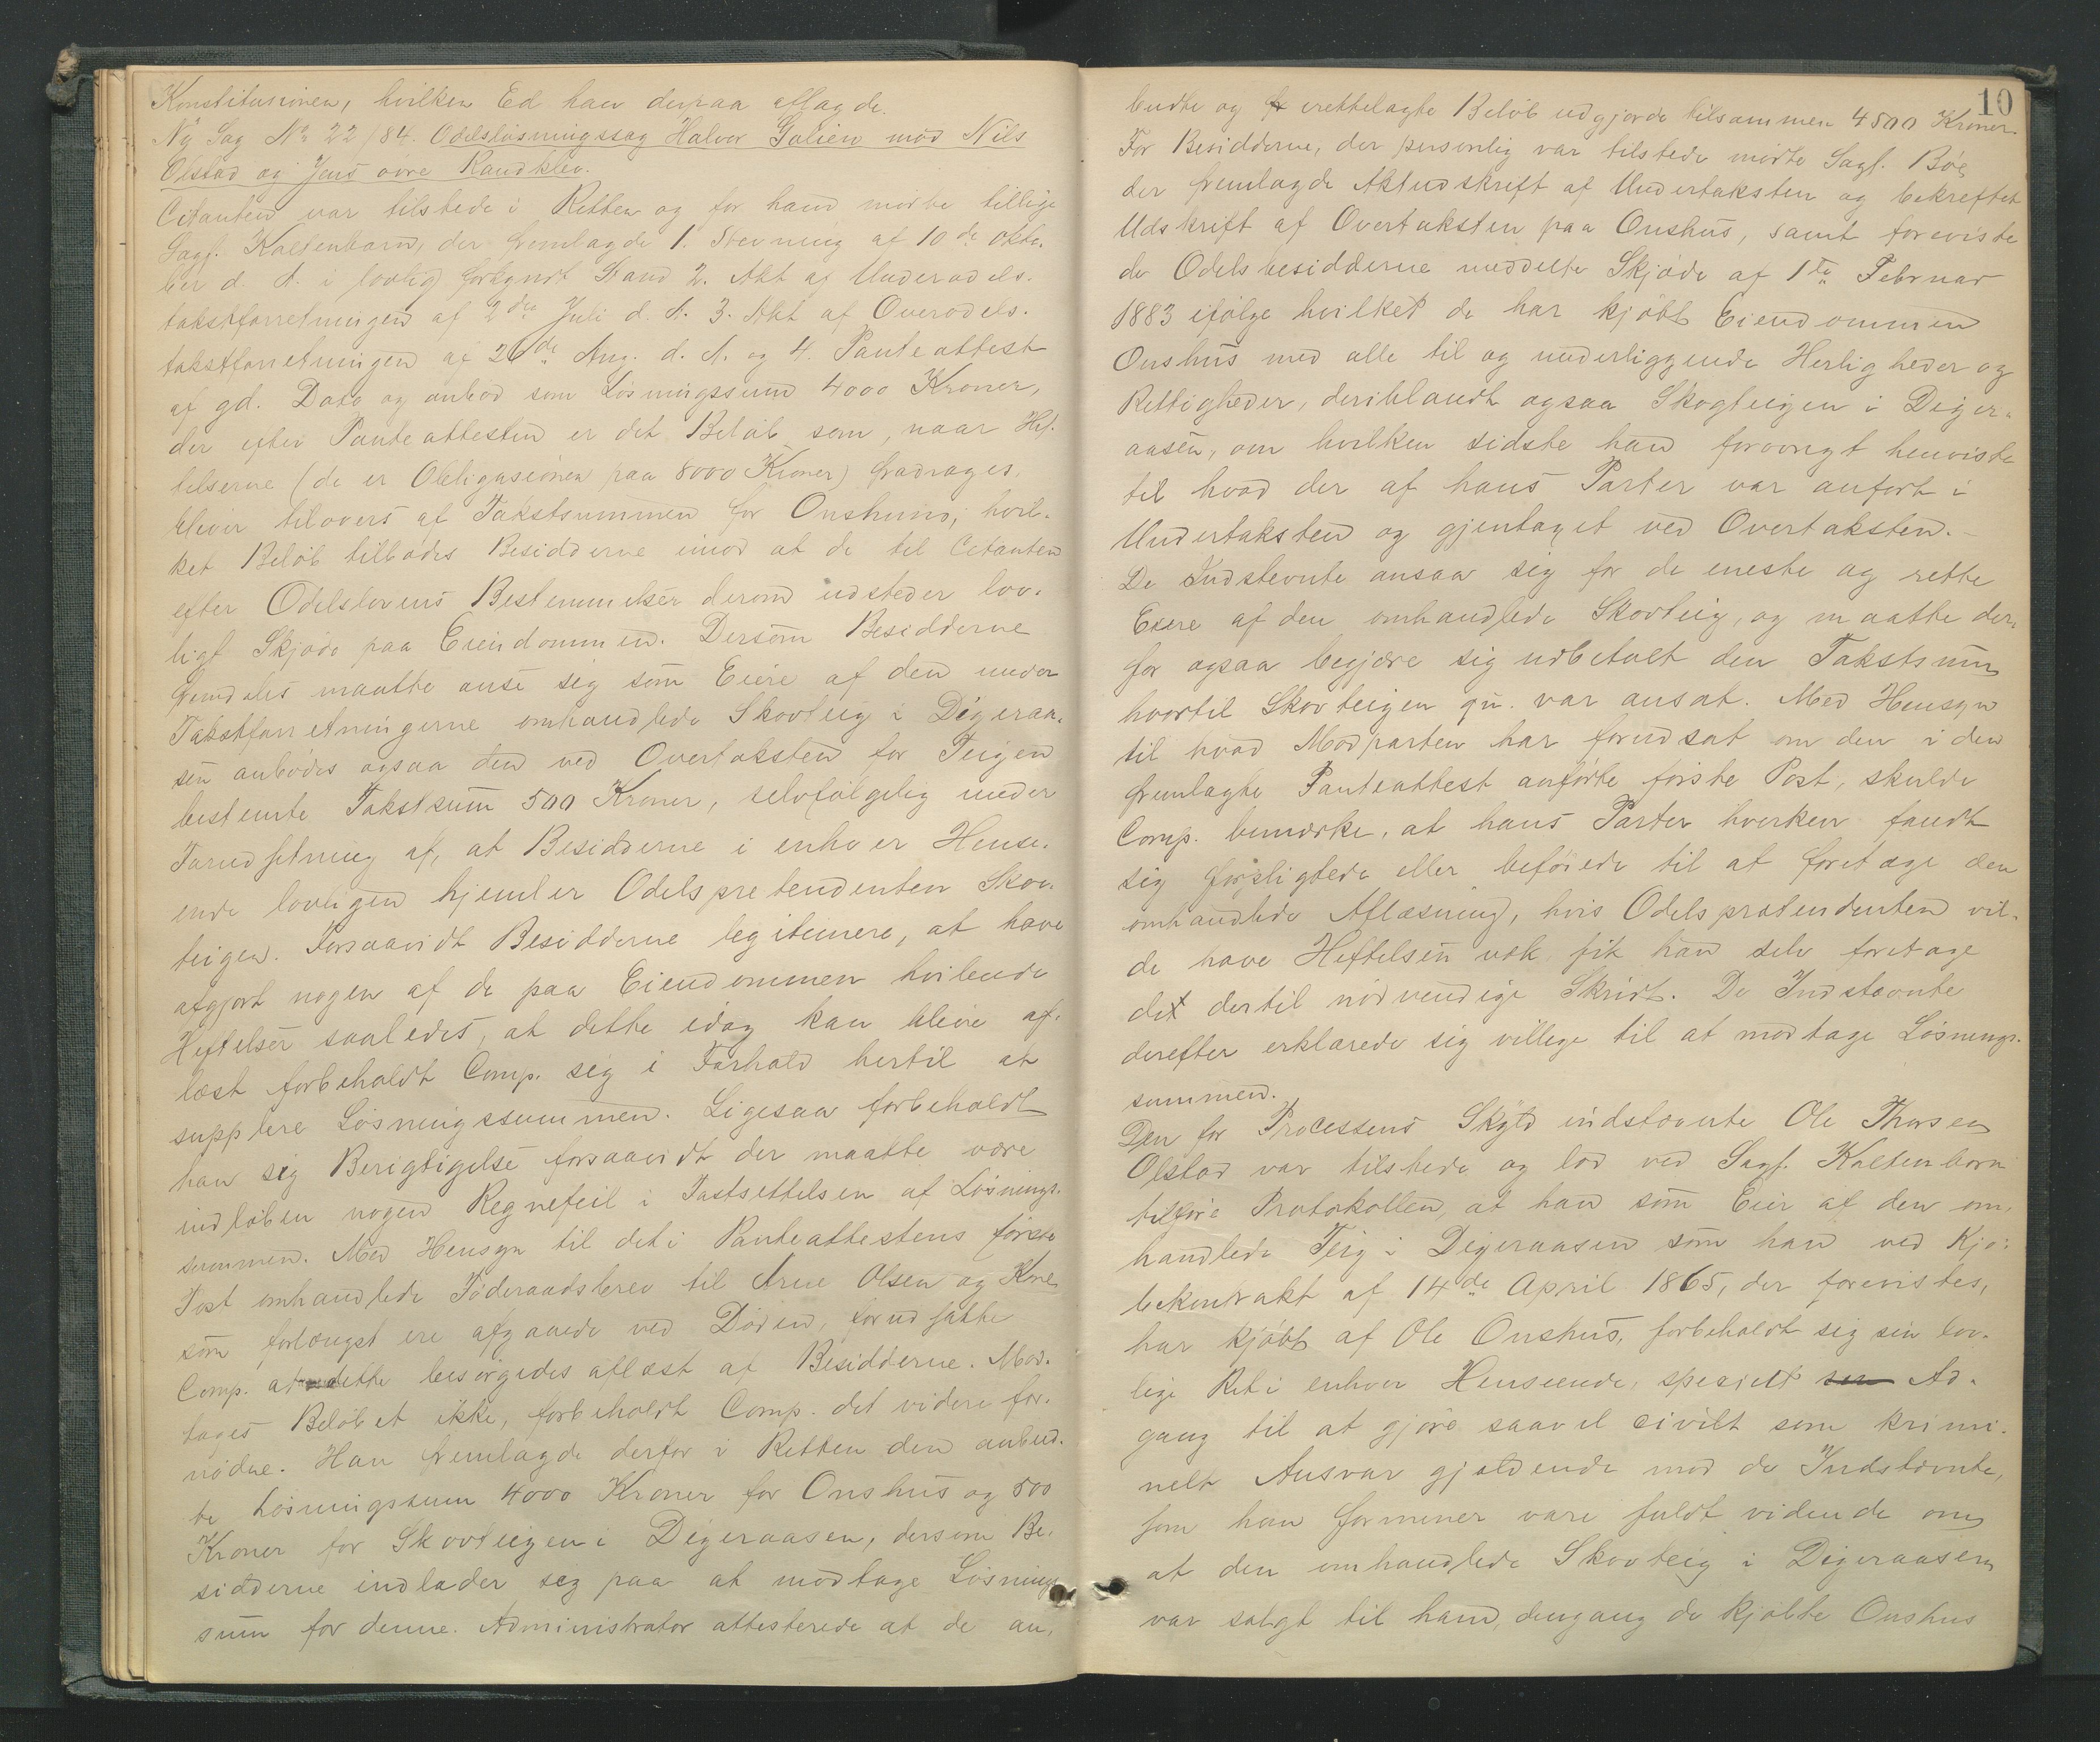 Konstitusionen, hvilken Ed han derpaa aflagde.
Ny Sag No 22/84. Odelsløsningssag Halvor Golien mod Nils
Olstad og Jens øvre Randklev.
Citanten var tilstede i Retten og for ham mødte tillige
Sagf. Kaltenborn, der fremlagde 1. Stevning af 10de Okto-
ber d. A. i lovlig forkyndt Stand 2. Akt af Underodels-
takstforretningen af 2den Juli d. A. 3. Akt af Overodels-
takstforretningen af 26de Aug. d. A. og 4. Panteattest
af gd. Dato og anbød som Løsningssum 4000 Kroner,
der efter Panteattesten er det Beløb som, naar Hef-
telserne (de er Obligasionen paa 8000 Kroner) fradrages,
bliver tilovers af Takstsummen for Onshuus, hvil-
ket Beløb tilbødes Besidderne imod at de til Citanten
efter Odelslovens Bestemmelser derom udsteder lov-
ligt Skjøde paa Eiendommen. Dersom Besidderne
fremdeles maatte anse sig som Eiere af den under
Takstforretningerne omhandlede Skovteig i Digeraa-
sen anbødes ogsaa den ved Overtaksten for Teigen
bestemte Takstsum 500 Kroner, selvfølgelig under
Forudsetning af, at Besidderne i enhver Hense-
ende lovligen hjemler Odelspretendenten Skov-
teigen. Forsaavidt Besidderne legitimere, at have
afgjort nogen af de paa Eiendommen hvilende
Heftelser saaledes, at dette idag kan blive af-
læst forbeholdt Comp. sig i Forhold hertil at
supplere Løsningssummen. Ligesaa forbeholdt
han sig Berigtigelse forsaavidt der maatte være
indløben nogen Regnefeil i Fastsettelsen af Løsnings-
summen. Med Hensyn til det i Panteattestens første
Post omhandlede Føderaadsbrev til Arne Olsen og Kone
som forlængst ere afgaaede ved Døden, forudsatte
Comp. at dette besørgedes aflæst af Besidderne. Mod-
tages Beløbet ikke, forbeholdt Comp. det videre for-
nødne. Han fremlagde derfor i Retten den anbud-
te Løsningssum 4000 Kroner for Onshus og 500
Kroner for Skovteigen i Digeraasen, dersom Be-
sidderne indlader sig paa at modtage Løsnings-
sum for denne. Administrator attesterede at de an-
10
budte og irettelagte Beløb udgjorde tilsammen 4500 Kroner.
For Besidderne, der personlig var tilstede mødte Sagf. Bøe
der fremlagde Aktudskrift af Undertaksten og bekreftet
Udskrift af Overtaksten paa Onshus, samt foreviste
de Odelsbesidderne meddelte Skjøde af 1ste Februar
1883 ifølge hvilket de har kjøbt Eiendommen
Onshus med alle til og underliggende Herligheder og
Rettigheder, deriblandt ogsaa Skogteigen i Diger-
aasen, om hvilken sidste han forøvrigt henviste
til hvad der af hans Parter var anført i
Undertaksten og gjentaget ved Overtaksten.
De Indstevnte ansaa sig for de eneste og rette
Eiere af den omhandlede Skovteig, og maatte der-
for ogsaa begjære sig udbetalt den Takstsum
hvortil Skovteigen qu. var ansat. Med Hensyn
til hvad Modparten har forudsat om den i den
fremlagte Panteattest anførte første Post, skulde
Comp. bemærke, at hans Parter hverken fandt
sig forpligtede eller beføiede til at foretage den
omhandlede Aflæsning, hvis Odelsprætendenten vil-
de have Heftelsen vek fik han selv foretage
det dertil nødvendige Skridt. De Indstævnte
derefter erklærede sig villige til at modtage Løsnings-
summen.
Den for Processens Skyld indstævnte Ole Thorsen
Olstad var tilstede og lod ved Sagf. Kaltenborn
tilføre Protokollen, at han som Eier af den om-
handlede Teig i Digeraasen som han ved Kjø-
bekontrakt af 14de April 1865, der forevistes,
har kjøbt af Ole Onshus, forbeholdt sig sin lov-
lige Ret i enhver Henseende, specielt Ad-
gang til at gjøre saavel civilt som krimi-
nelt Ansvar gjældende mod de Indstævnte,
som han formener vare fuldt vidende om
at den omhandlede Skovteig i Digeraasen
var solgt til ham, dengang de kjøbte Onshus